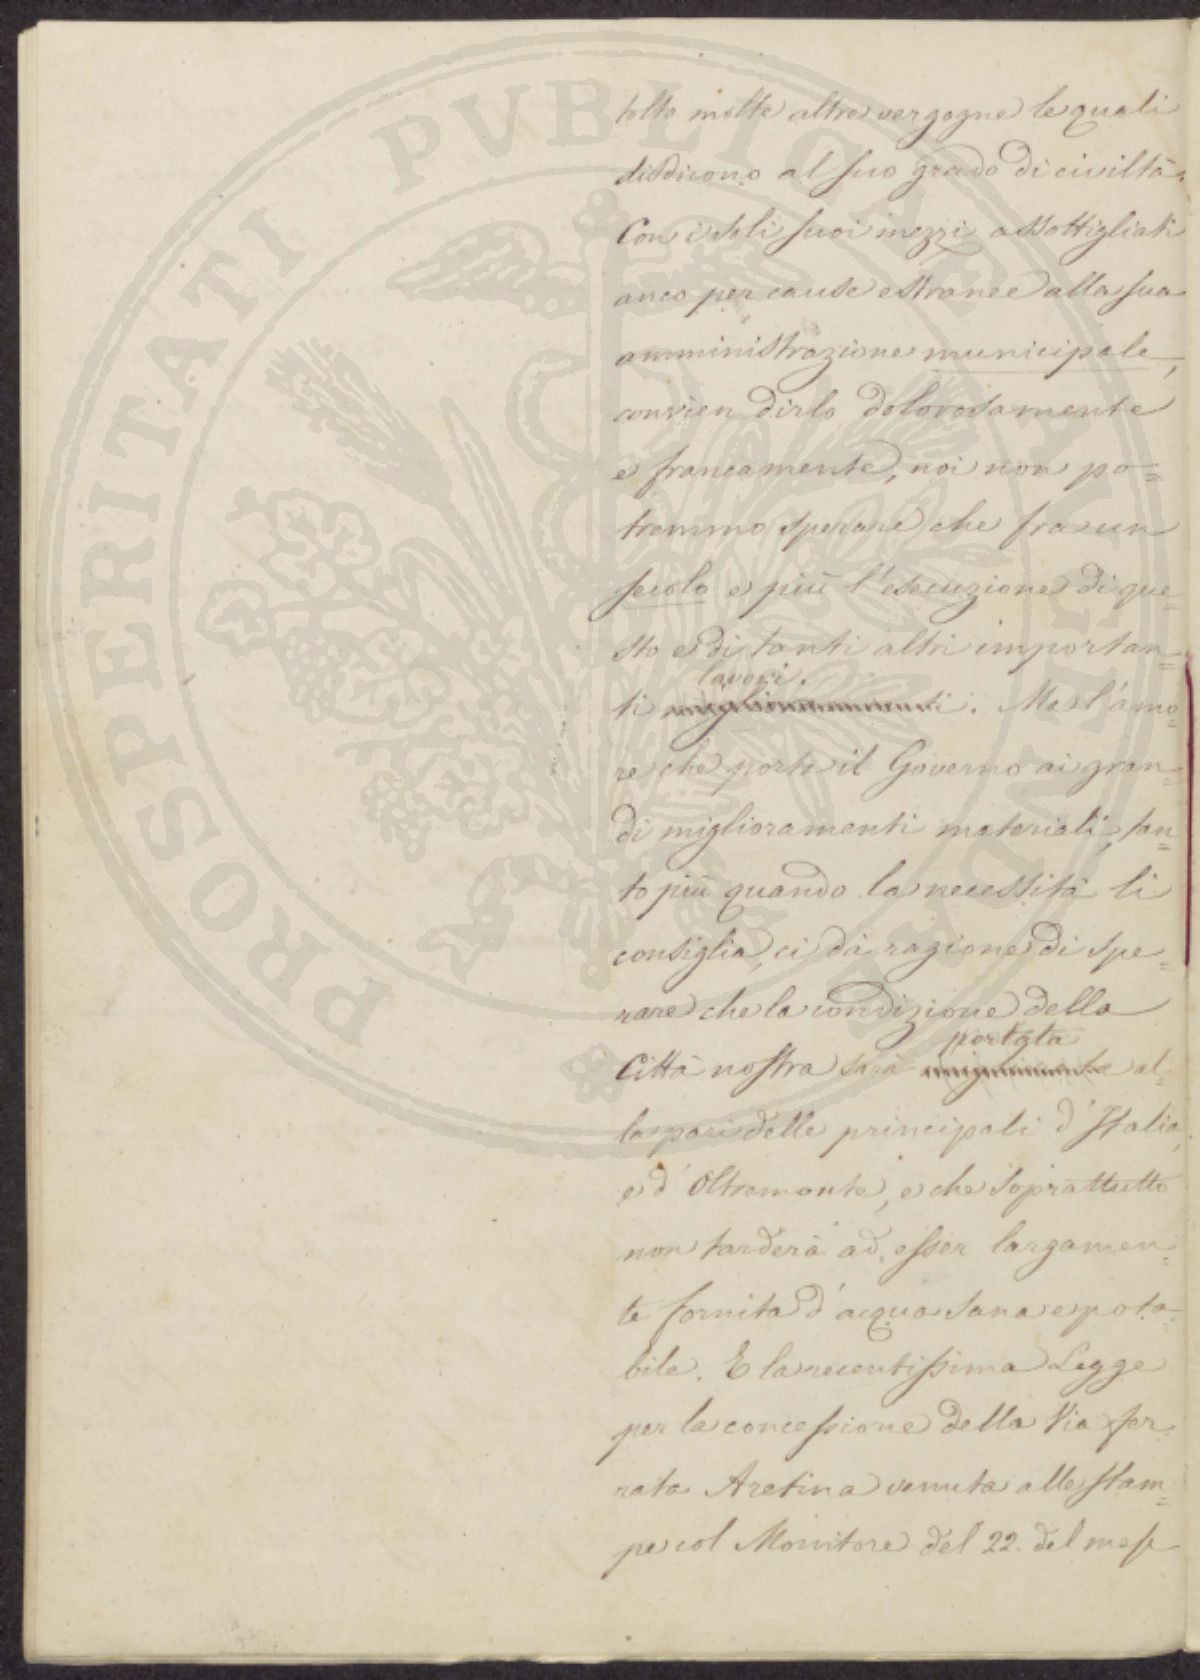 PROSPERITATI PVBLICAE AVGENDAE
tolto molte altre vergogne le quali
disdicono al suo grado di civiltà.
Con i soli suoi mezzi assottigliati
anco per cause estranee alla sua
amministrazione municipale,
convien dirlo dolorosamente
e francamente, noi non po=
tremmo sperare che fra un
secolo e più l'esecuzione di que=
sto e di tanti altri importan=
lavori.
ti miglioramenti. Ma l'amo=
re che porta il Governo ai gran=
di miglioramenti materiali, tan=
to più quando la necessità li
consiglia, ci dà ragione di spe=
rare che la condizione della
portata
Città nostra sarà al=
la pari delle principali d'Italia,
e d'Oltremonte, e che soprattutto
non tarderà ad esser largamen=
te fornita d'acqua sana e pota=
bile. E la recentissima Legge
per la concessione della Via fer=
rata Aretina venuta alle stam=
pe col Monitore del 22. del mese